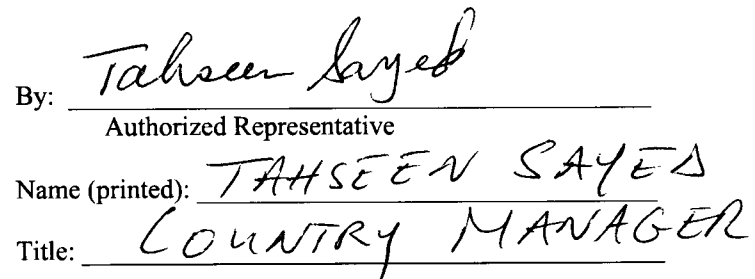 By: Tahseen Sayed
Authorized Representative
Name (printed): TAHSEEN SAYED
Title: COUNTRY MANAGER